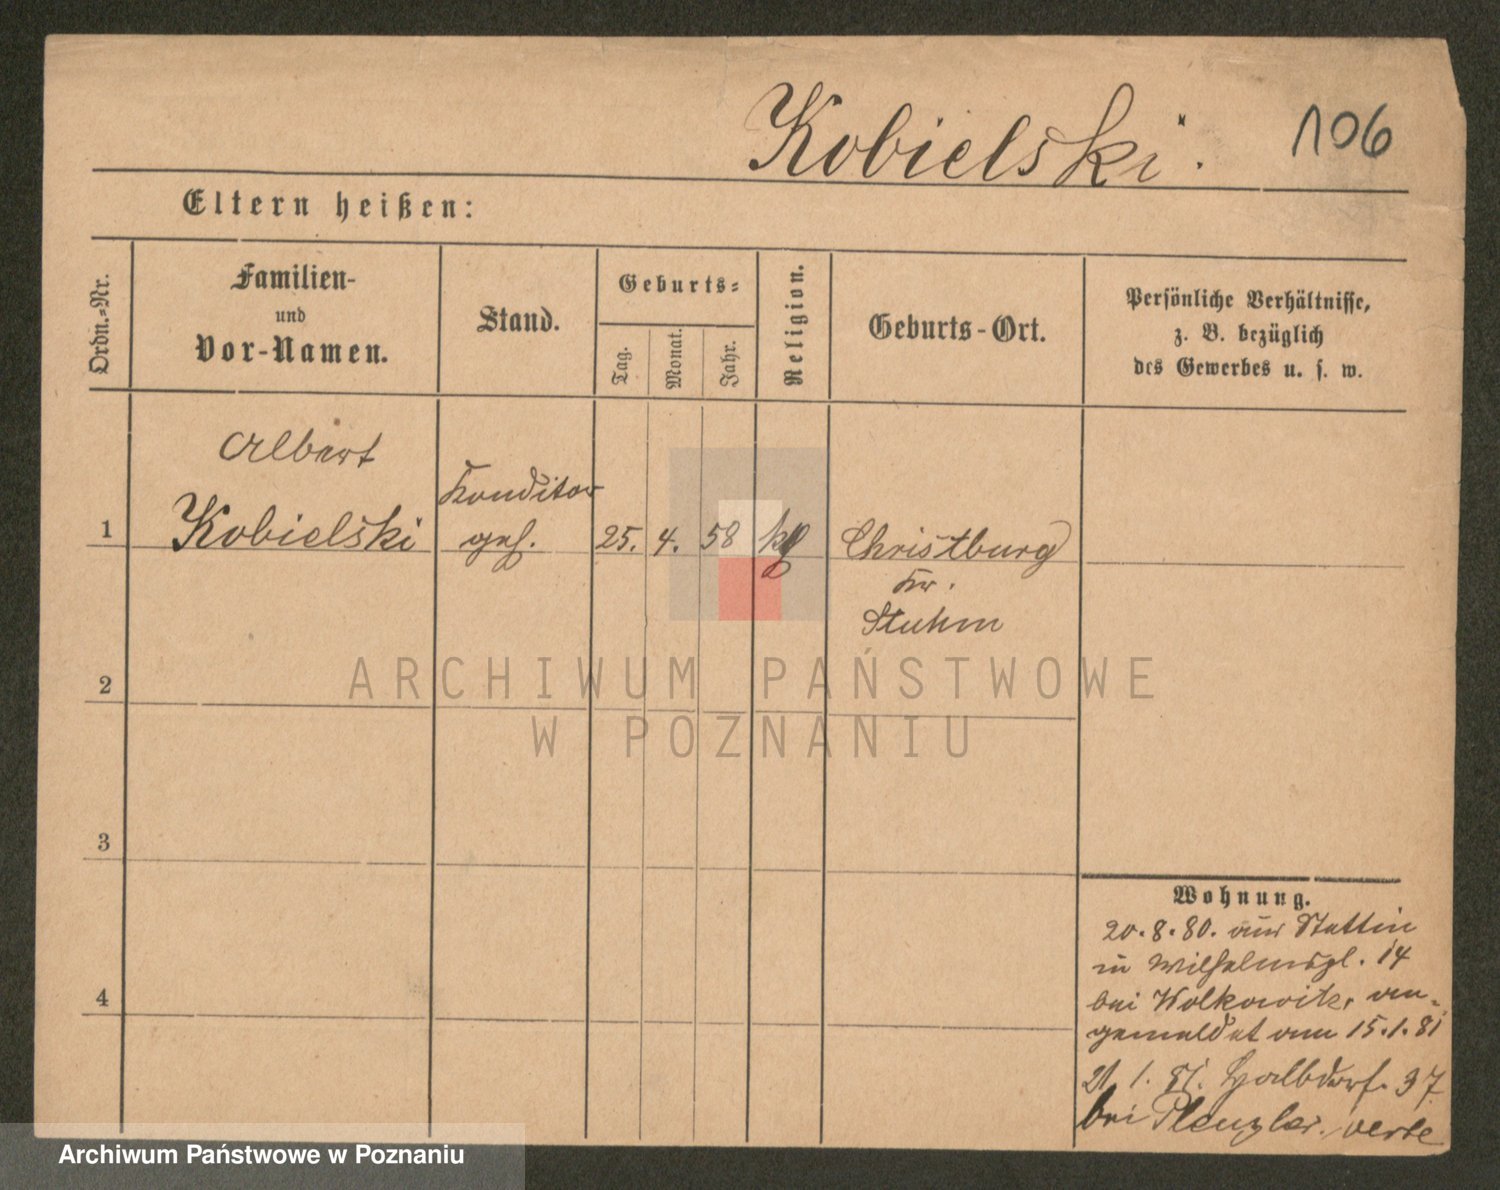 Kobielski.
106
Eltern heißen:
Ordn.-Nr.
Familien-
und
Vor-Namen.
Stand.
Geburts-
Tag.
Monat.
Jahr.
Religion.
Geburts-Ort.
Persönliche Verhältnisse,
z. B. bezüglich
des Gewerbes u. s. w.
Albert
Konditor
1 Kobielski geh. 25. 4. 58 Christburg
Kr.
Stuhm
2
3
4
Wohnung.
20.8.80. aus Stettin
in Wilhelmspl. 14
bei Wolkowitz, an-
gemeldet am 15.1.81
21.1.81. Halbdorf. 37
bei Plenzler.
ARCHIWUM PAŃSTWOWE
W POZNANIU
Archiwum Państwowe w Poznaniu